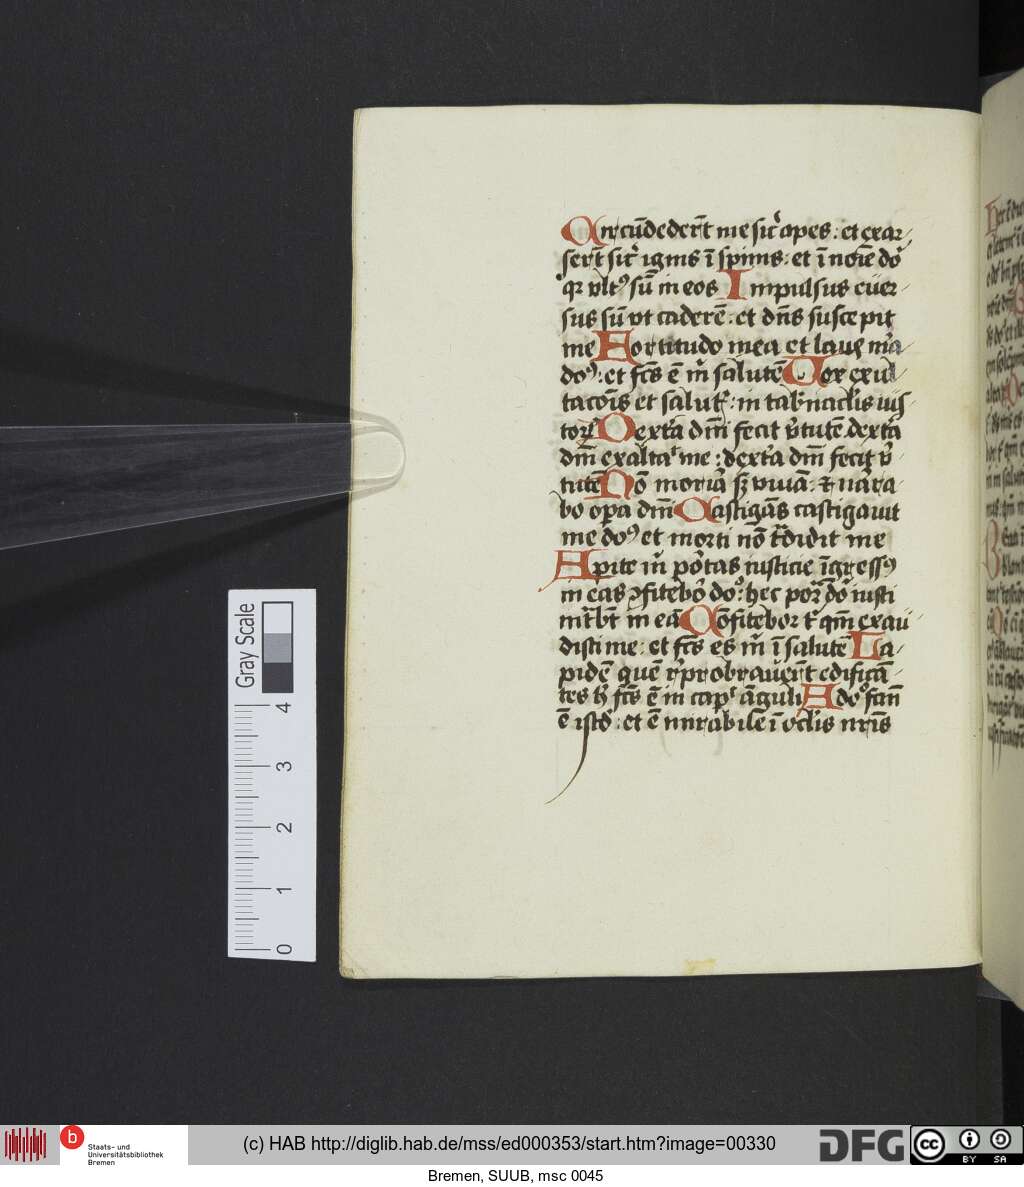 Circūdeder̄t me sic̄ apes : et exar
ser̄t sic̄ ignis ī spinis : et ī noīe do
qr̄ vltꝰ sū in eos Impulsus euer
sus sū vt caderē : et dn̄s suscepit
me Fortitudo mea et laus mā
doꝰ : et fc̄s ē m̄ salutē Uox exul
tacōis et salut : in tab̄naclis ius
toꝝ Dext̄a dn̄i fecit v̄tutē dext̄a
dn̄i exaltaᵗ me : dext̄a dn̄i fecit v̄
tutē Nō moriar̄ sꝫ viuā : et nar̄a
bo oꝑa dn̄i Castigās castigauit
me doꝰ et morti nō t̄didit me
Apite m̄ por̄tas iusticie īgressꝰ
in eas ꝯfitebor̄ doꝰ : hec por̄ doī iusti
int̄bt̄ in eā Cōfitebor tⁱ qm̄ exau
disti me : et fc̄s es m̄ ī salutē La
pidē quē r̄probraūer̄t edificā
tes hⁱ fc̄s ē in capᵗ āguli A doº fcm̄
ē istd : et ē mirabile ī oclis nr̄is
Gray Scale
4
3
2
1
0
b
Staats- und
Universitätsbibliothek
Bremen
(c) HAB http://diglib.hab.de/mss/ed000353/start.htm?image=00330
DFG
cc
BY SA
Bremen, SUUB, msc 0045